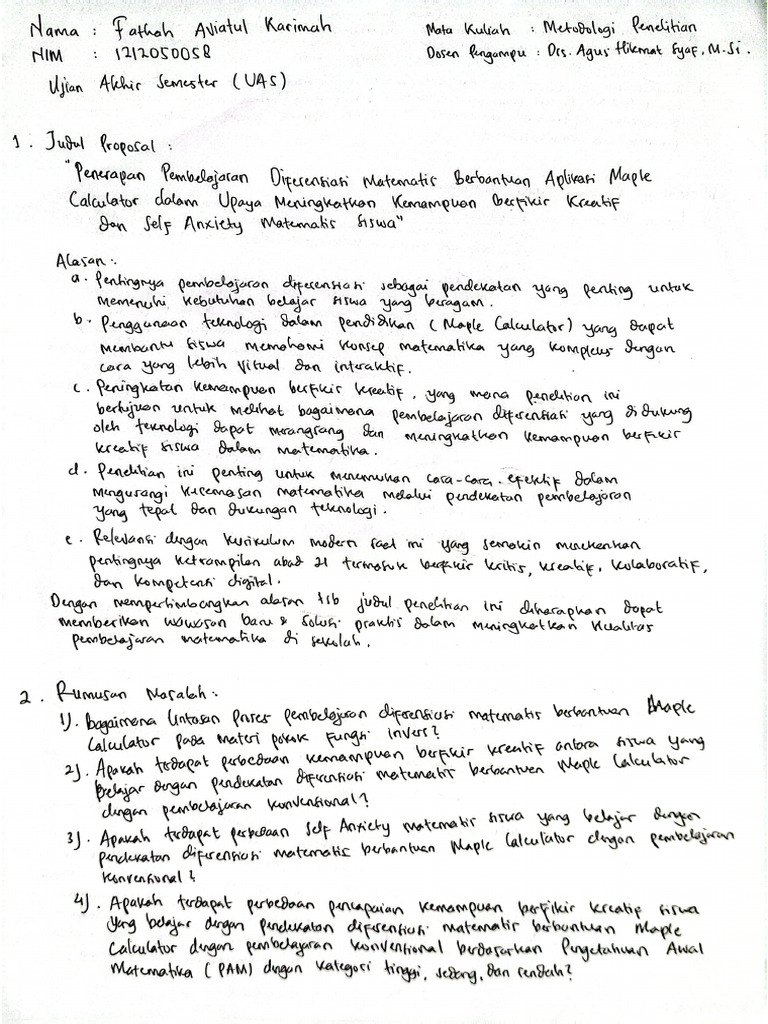 Nama : Fathah Aviatul Karimah
NIM : 1212050058
Mata Kuliah : Metodologi Penelitian
Dosen Pengampu : Drs. Agus Hikmat Syaf, M.Si.
Ujian Akhir Semester (UAS)
1. Judul Proposal :
"Penerapan Pembelajaran Diferensiasi Matematis Berbantuan Aplikasi Maple
Calculator dalam Upaya Meningkatkan Kemampuan Berfikir Kreatif
dan Self Anxiety Matematis Siswa"
Alasan :
a. Pentingnya pembelajaran diferensiasi sebagai pendekatan yang penting untuk
memenuhi kebutuhan belajar siswa yang beragam.
b. Penggunaan teknologi dalam pendidikan (Maple Calculator) yang dapat
membantu siswa memahami konsep matematika yang kompleks dengan
cara yang lebih visual dan interaktif.
c. Peningkatan kemampuan berfikir kreatif, yang mana penelitian ini
bertujuan untuk melihat bagaimana pembelajaran diferensiasi yang didukung
oleh teknologi dapat merangsang dan meningkatkan kemampuan berfikir
kreatif siswa dalam matematika.
d. Penelitian ini penting untuk menemukan cara-cara efektif dalam
mengurangi kecemasan matematika melalui pendekatan pembelajaran
yang tepat dan dukungan teknologi.
e. Relevansi dengan kurikulum modern saat ini yang semakin menekankan
pentingnya ketrampilan abad 21 termasuk berfikir kritis, kreatif, kolaboratif,
dan kompetensi digital.
Dengan mempertimbangkan alasan tsb judul penelitian ini diharapkan dapat
memberikan wawasan baru & solusi praktis dalam meningkatkan kualitas
pembelajaran matematika di sekolah.
2. Rumusan Masalah :
1). Bagaimana lintasan proses pembelajaran diferensiasi matematis berbantuan Maple
Calculator pada materi pokok fungsi invers?
2). Apakah terdapat perbedaan kemampuan berfikir kreatif antara siswa yang
belajar dengan pendekatan diferensiasi matematis berbantuan Maple Calculator
dengan pembelajaran konvensional?
3). Apakah terdapat perbedaan Self Anxiety matematis siswa yang belajar dengan
pendekatan diferensiasi matematis berbantuan Maple Calculator dengan pembelajaran
konvensional?
4). Apakah terdapat perbedaan pencapaian kemampuan berfikir kreatif siswa
yang belajar dengan pendekatan diferensiasi matematis berbantuan Maple
Calculator dengan pembelajaran konvensional berdasarkan Pengetahuan Awal
Matematika (PAM) dengan kategori tinggi, sedang, dan rendah?